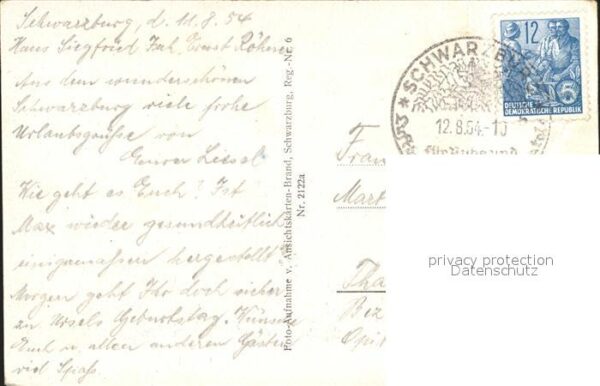 Schwarzburg, d. 11.8.54
Haus Siegfried Inh. Ernst Röhm
Aus dem wunderschönen
Schwarzburg viele frohe
Urlaubsgrüße von
Eurer Liesel
Wie geht es Euch? Ist
Max wieder gesundheitlich
einigermaßen hergestellt?
Morgen geht Ihr doch sicher
zu Ursels Geburtstag. Wünsche
Euch u. allen anderen Gästen
viel Spaß.
Foto-Aufnahme v. Ansichtskarten-Brand, Schwarzburg, Reg.-Nr. 6
Nr. 2122a
SCHWARZBURG
12.8.54.-10
12
DEUTSCHE
DEMOKRATISCHE REPUBLIK
5
Frau
Mart
Tha
Biz
Opi
privacy protection
Datenschutz